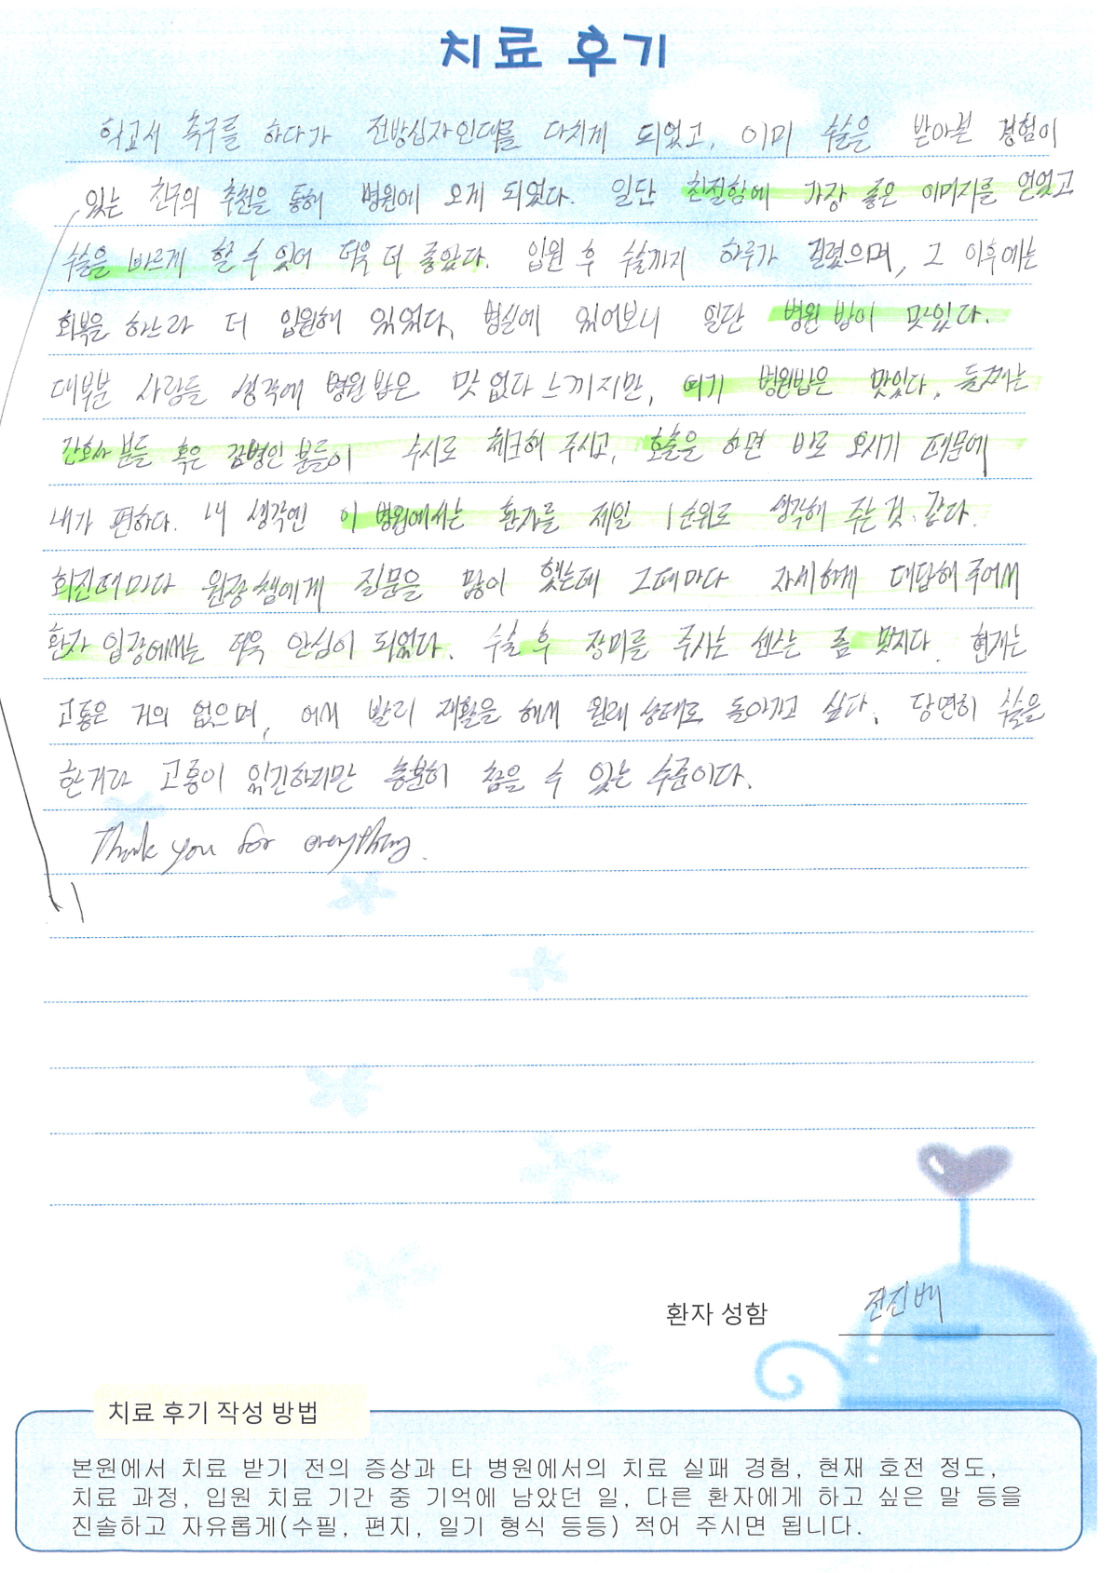 치료 후기
학교서 축구를 하다가 전방십자인대를 다치게 되었고, 이미 수술은 받아본 경험이
있는 친구의 추천을 통해 병원에 오게 되었다. 일단 친절함에 가장 좋은 이미지를 얻었고
수술을 빠르게 할 수 있어 더욱 더 좋았다. 입원 후 수술까지 하루가 걸렸으며, 그 이후에는
회복을 하느라 더 입원해 있었다. 병실에 있어보니 일단 병원 밥이 맛있다.
대부분 사람들 생각에 병원밥은 맛 없다 느끼지만, 여기 병원밥은 맛있다. 둘째는
간호사 분들 혹은 간병인 분들이 수시로 체크해 주시고, 호출을 하면 바로 오시기 때문에
내가 편하다. 내 생각엔 이 병원에서는 환자를 제일 1순위로 생각해 주는 것 같다.
회진때마다 원장쌤에게 질문을 많이 했는데 그때마다 자세하게 대답해 주어서
환자 입장에서는 더욱 안심이 되었다. 수술 후 장미를 주시는 센스는 좀 멋지다. 현재는
고통은 거의 없으며, 어서 빨리 재활을 해서 원래 상태로 돌아가고 싶다. 당연히 수술을
한거라 고통이 있긴하지만 충분히 참을 수 있는 수준이다.
Thank you for everything.
환자 성함 전진배
치료 후기 작성 방법
본원에서 치료 받기 전의 증상과 타 병원에서의 치료 실패 경험, 현재 호전 정도,
치료 과정, 입원 치료 기간 중 기억에 남았던 일, 다른 환자에게 하고 싶은 말 등을
진솔하고 자유롭게(수필, 편지, 일기 형식 등등) 적어 주시면 됩니다.